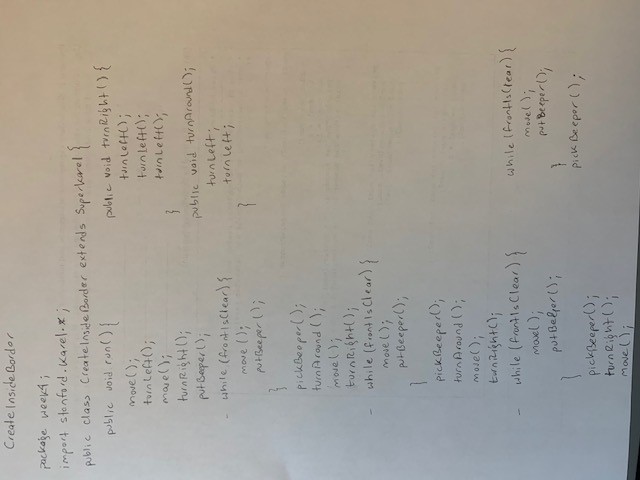 CreateInsideBorder
package week4;
import stanford.karel.*;
public class CreateInsideBorder extends SuperKarel {
public void run() {
move();
turnLeft();
move();
turnRight();
putBeeper();
- while (frontIsClear) {
move ();
putBeeper ();
}
pickBeeper();
turnAround ();
move();
turnRight();
- while (frontIsClear) {
move();
putBeeper();
}
pickBeeper();
turnAround ();
move();
turnRight();
- while (frontIsClear) {
move();
putBeeper ();
}
pickBeeper();
turnRight();
move();
public void turnRight () {
turnLeft();
turnLeft();
turnLeft();
}
public void turnAround();
turnLeft;
turnLeft;
}
while (frontIsClear) {
move();
putBeeper();
}
pickBeeper ();